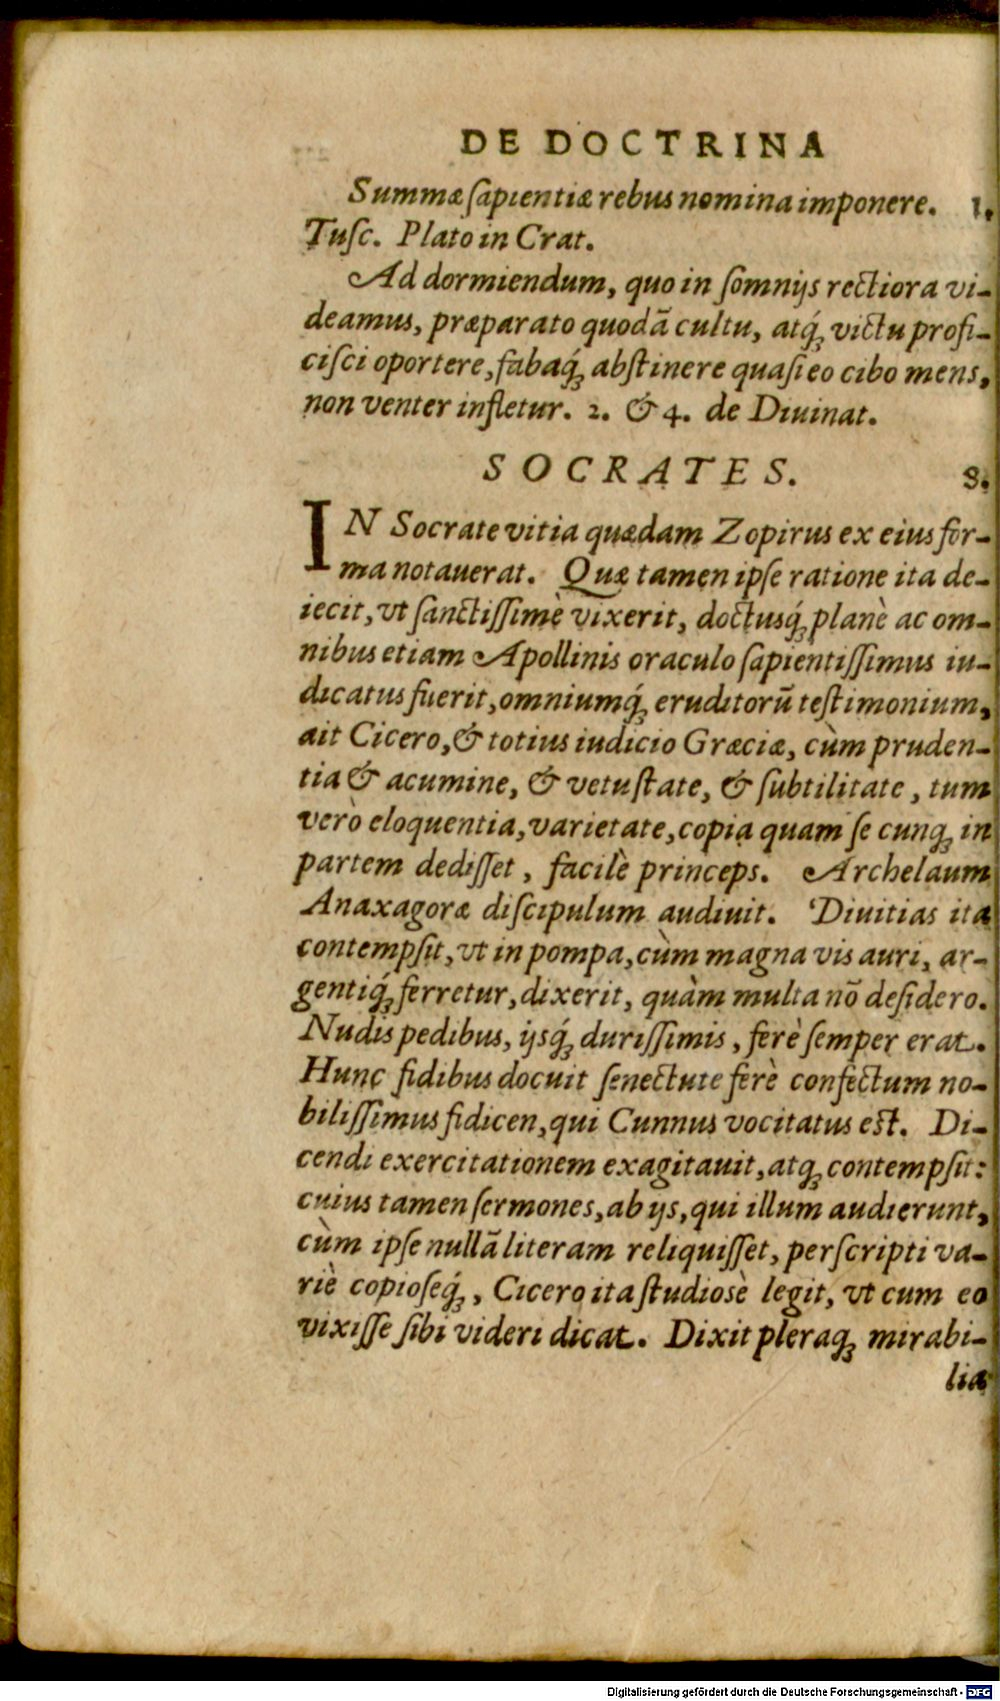 DE DOCTRINA
Summæ ſapientiæ rebus nomina imponere. 1.
Tuſc. Plato in Crat.
Ad dormiendum, quo in ſomnijs rectiora vi-
deamus, præparato quodã cultu, atq́ꝫ victu profi-
ciſci oportere, fabaq́ꝫ abſtinere quaſi eo cibo mens,
non venter infletur. 2. & 4. de Diuinat.
SOCRATES. 8.
IN Socrate vitia quædam Zopirus ex eius for-
ma notauerat. Quæ tamen ipſe ratione ita de-
iecit, vt ſanctiſſimè vixerit, doctusq́ꝫ planè ac om-
nibus etiam Apollinis oraculo ſapientiſſimus iu-
dicatus fuerit, omniumq́ꝫ eruditorũ teſtimonium,
ait Cicero, & totius iudicio Græciæ, cùm pruden-
tia & acumine, & vetuſtate, & ſubtilitate, tum
verò eloquentia, varietate, copia quam ſe cunqꝫ in
partem dediſſet, facilè princeps. Archelaum
Anaxagoræ diſcipulum audiuit. Diuitias ita
contempſit, vt in pompa, cùm magna vis auri, ar-
gentiq́ꝫ ferretur, dixerit, quàm multa nõ deſidero.
Nudis pedibus, ijsq́ꝫ duriſſimis, ferè ſemper erat.
Hunc fidibus docuit ſenectute ferè confectum no-
biliſſimus fidicen, qui Cunnus vocitatus eſt. Di-
cendi exercitationem exagitauit, atqꝫ contempſit:
cuius tamen ſermones, ab ijs, qui illum audierunt,
cùm ipſe nullã literam reliquiſſet, perſcripti va-
riè copioſeq́ꝫ, Cicero ita ſtudiosè legit, vt cum eo
vixiſſe ſibi videri dicat. Dixit pleraqꝫ mirabi-
lia
Digitalisierung gefördert durch die Deutsche Forschungsgemeinschaft - DFG